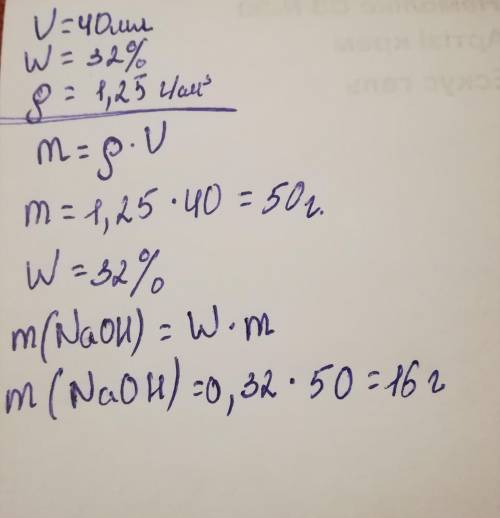 V=40мл
W=32%
ρ=1,25 г/см³
m=ρ·V
m=1,25·40=50г.
W=32%
m(NaOH)=W·m
m(NaOH)=0,32·50=16г